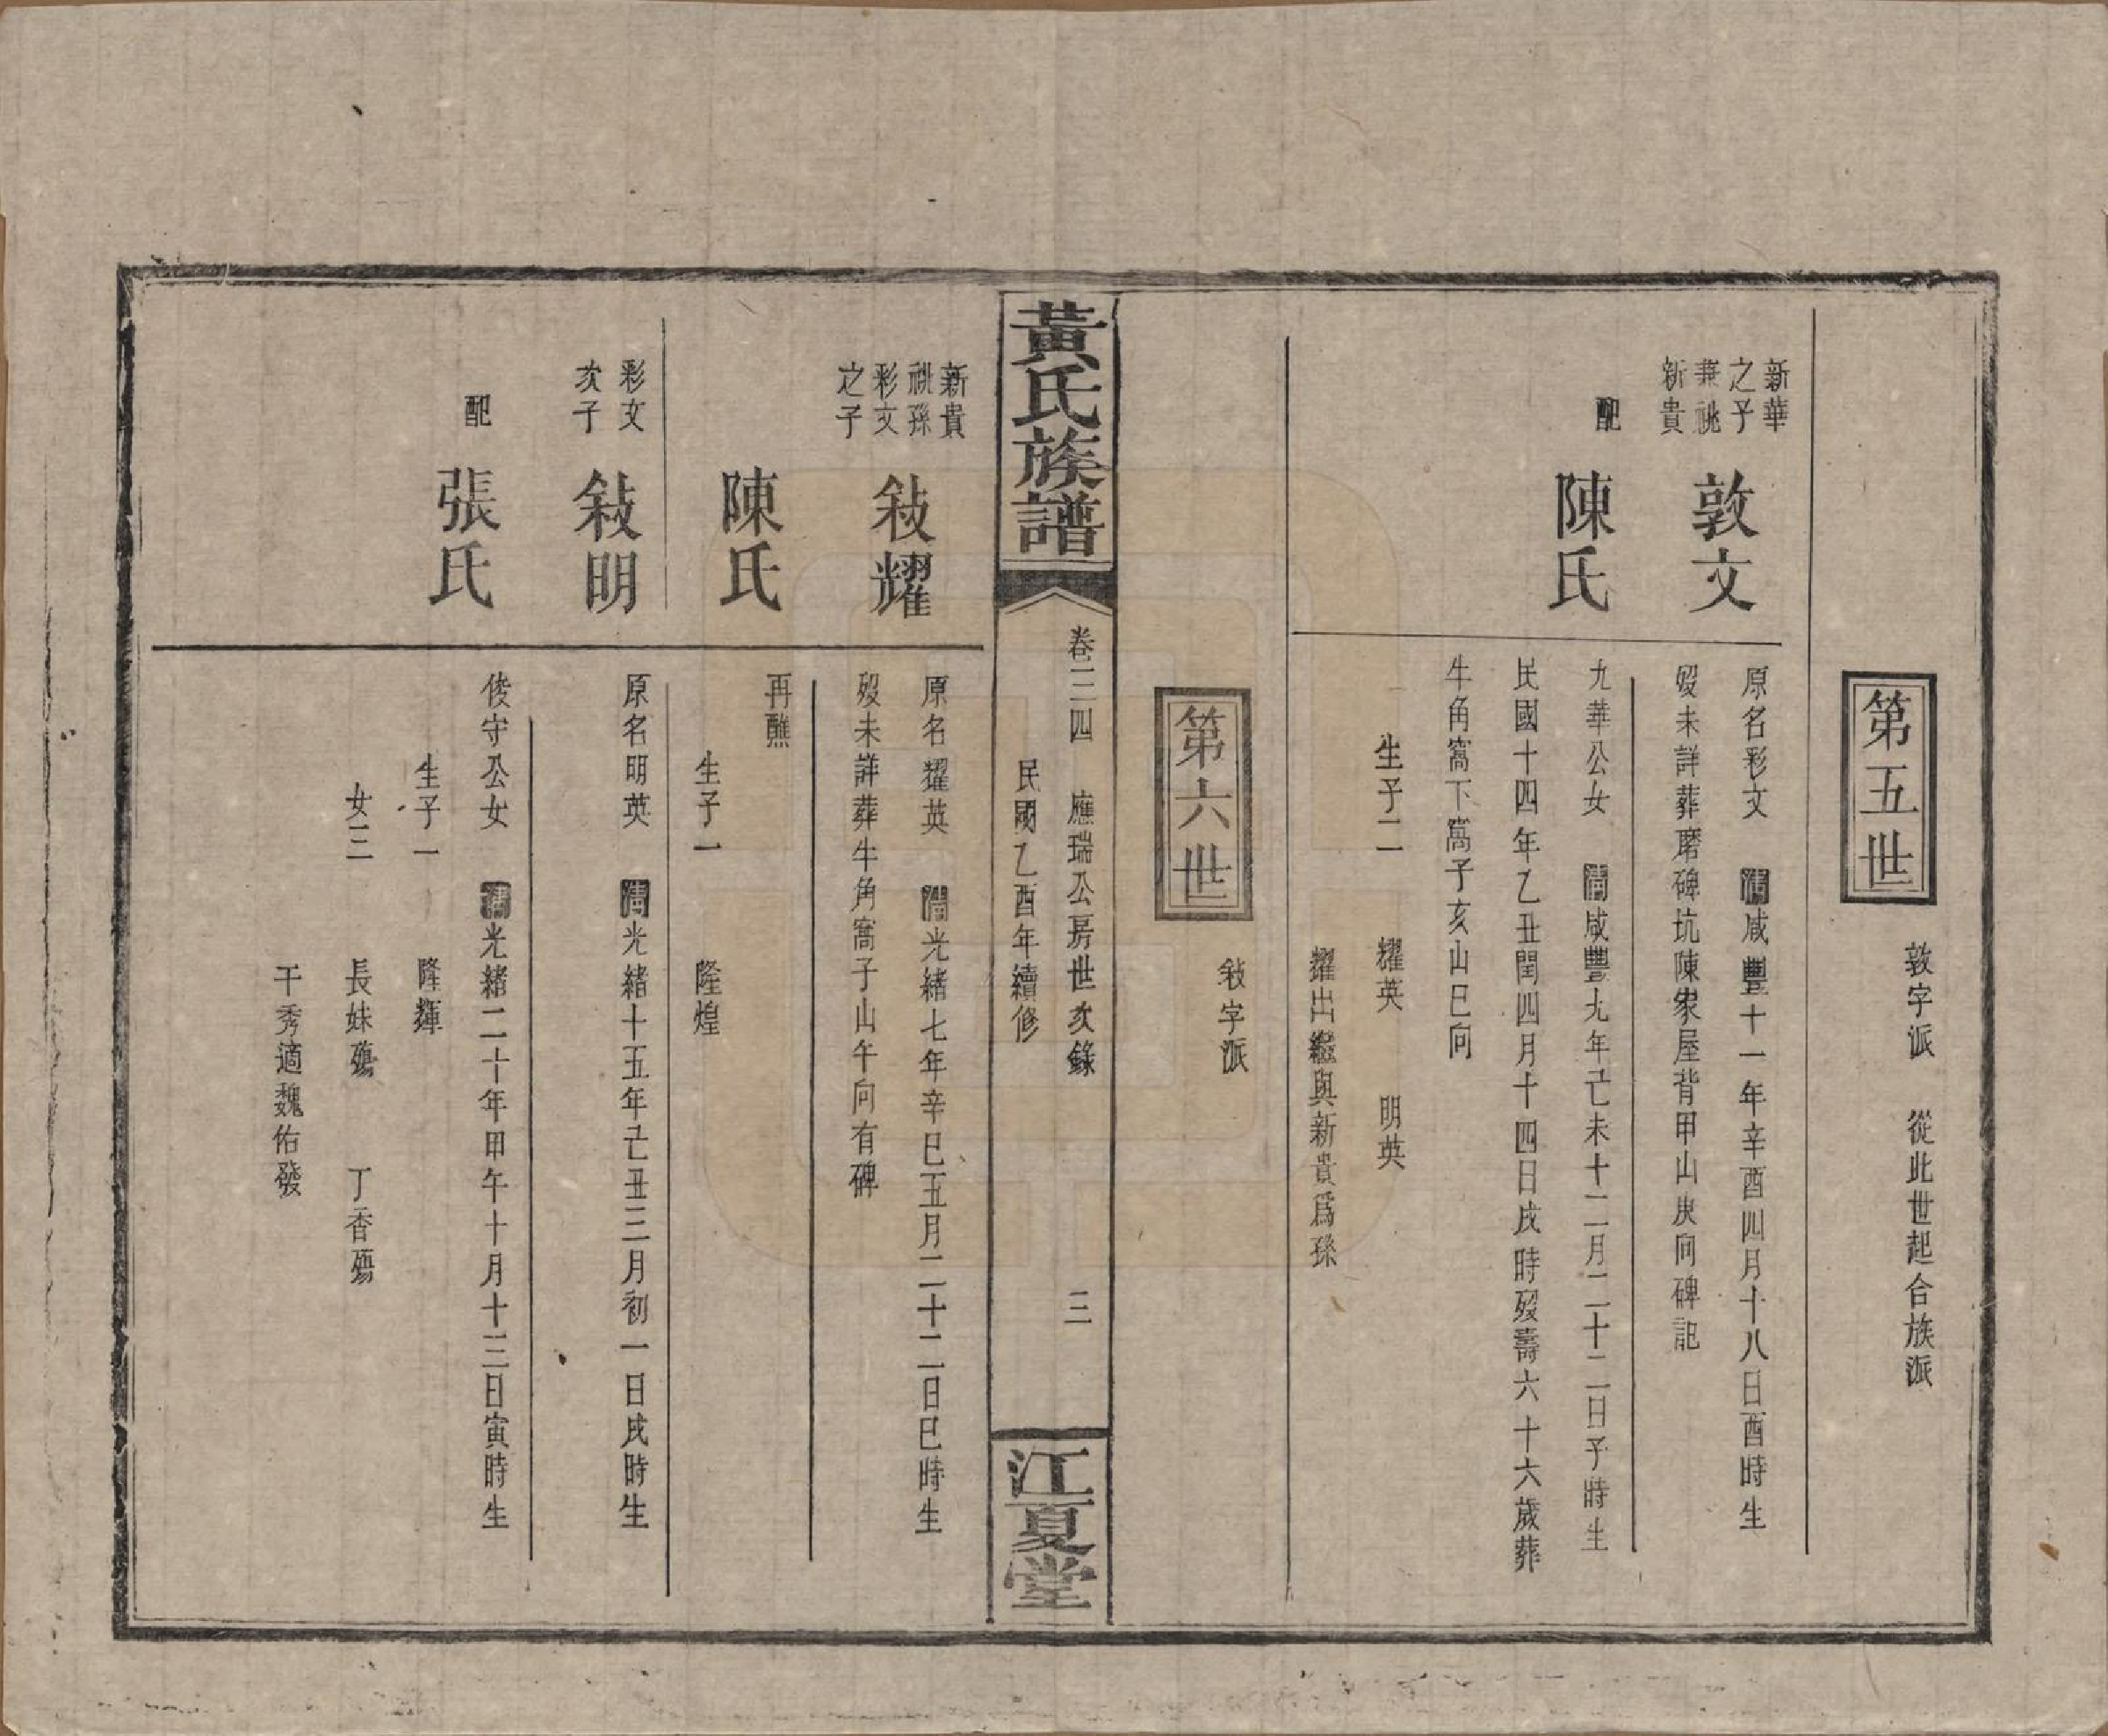 第五世
敦字派　從此世起合族派
新華
之子
兼祧
新貴
敦文
原名彩文　清咸豐十一年辛酉四月十八日酉時生
歿未詳葬磨碑坑陳家屋背甲山庚向碑記
配
陳氏
九華公女　清咸豐九年己未十二月二十二日子時生
民國十四年乙丑閏四月十四日戌時歿壽六十六歲葬
牛角窩下窩子亥山巳向
生子二　耀英　明英
耀出繼與新貴爲孫
第六世
敍字派
黃氏族譜
卷三四　應瑞公房世次錄　三
民國乙酉年續修
江夏堂
新貴
祧孫
彩文
之子
敍耀
原名耀英　清光緒七年辛巳五月二十二日巳時生
歿未詳葬牛角窩子山午向有碑
陳氏
再醮
生子一　隆煌
彩文
次子
敍明
原名明英　清光緒十五年己丑三月初一日戌時生
配
張氏
俊守公女　清光緒二十年甲午十月十三日寅時生
生子一　隆輝
女三　長妹殤　丁香殤
干秀適魏佑發